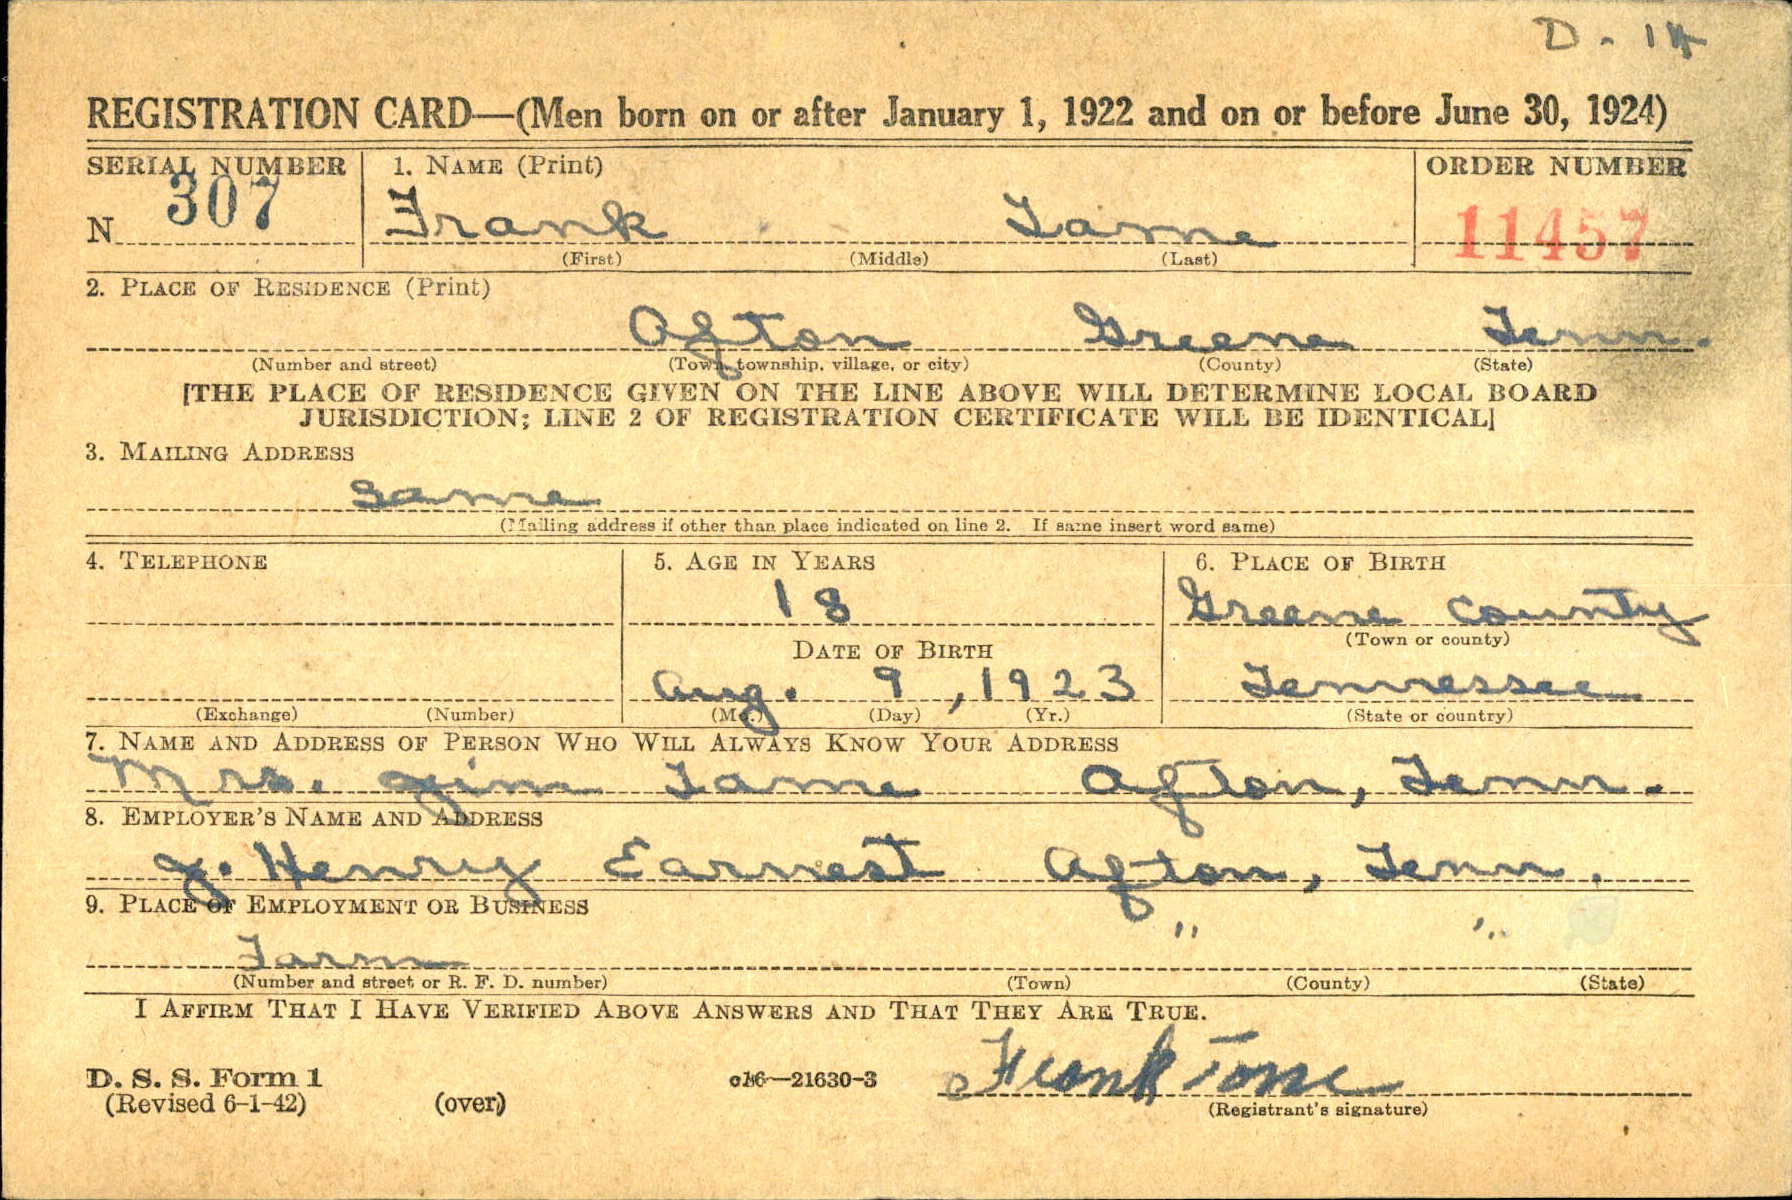 D-14
REGISTRATION CARD—(Men born on or after January 1, 1922 and on or before June 30, 1924)
SERIAL NUMBER 1. NAME (Print) ORDER NUMBER
N 307 Frank Tame 11457
(First) (Middle) (Last)
2. PLACE OF RESIDENCE (Print)
Afton Greene Tenn.
(Number and street) (Town, township, village, or city) (County) (State)
[THE PLACE OF RESIDENCE GIVEN ON THE LINE ABOVE WILL DETERMINE LOCAL BOARD
JURISDICTION; LINE 2 OF REGISTRATION CERTIFICATE WILL BE IDENTICAL]
3. MAILING ADDRESS
same
(Mailing address if other than place indicated on line 2. If same insert word same)
4. TELEPHONE 5. AGE IN YEARS 6. PLACE OF BIRTH
18 Greene County
DATE OF BIRTH (Town or county)
Aug. 9, 1923 Tennessee
(Exchange) (Number) (Mo.) (Day) (Yr.) (State or country)
7. NAME AND ADDRESS OF PERSON WHO WILL ALWAYS KNOW YOUR ADDRESS
Mrs. Jim Tame Afton, Tenn.
8. EMPLOYER'S NAME AND ADDRESS
J. Henry Earnest Afton, Tenn.
9. PLACE OF EMPLOYMENT OR BUSINESS
Farm " "
(Number and street or R. F. D. number) (Town) (County) (State)
I AFFIRM THAT I HAVE VERIFIED ABOVE ANSWERS AND THAT THEY ARE TRUE.
Frank Tame
D. S. S. Form 1 c16—21630-3
(Revised 6-1-42) (over) (Registrant's signature)